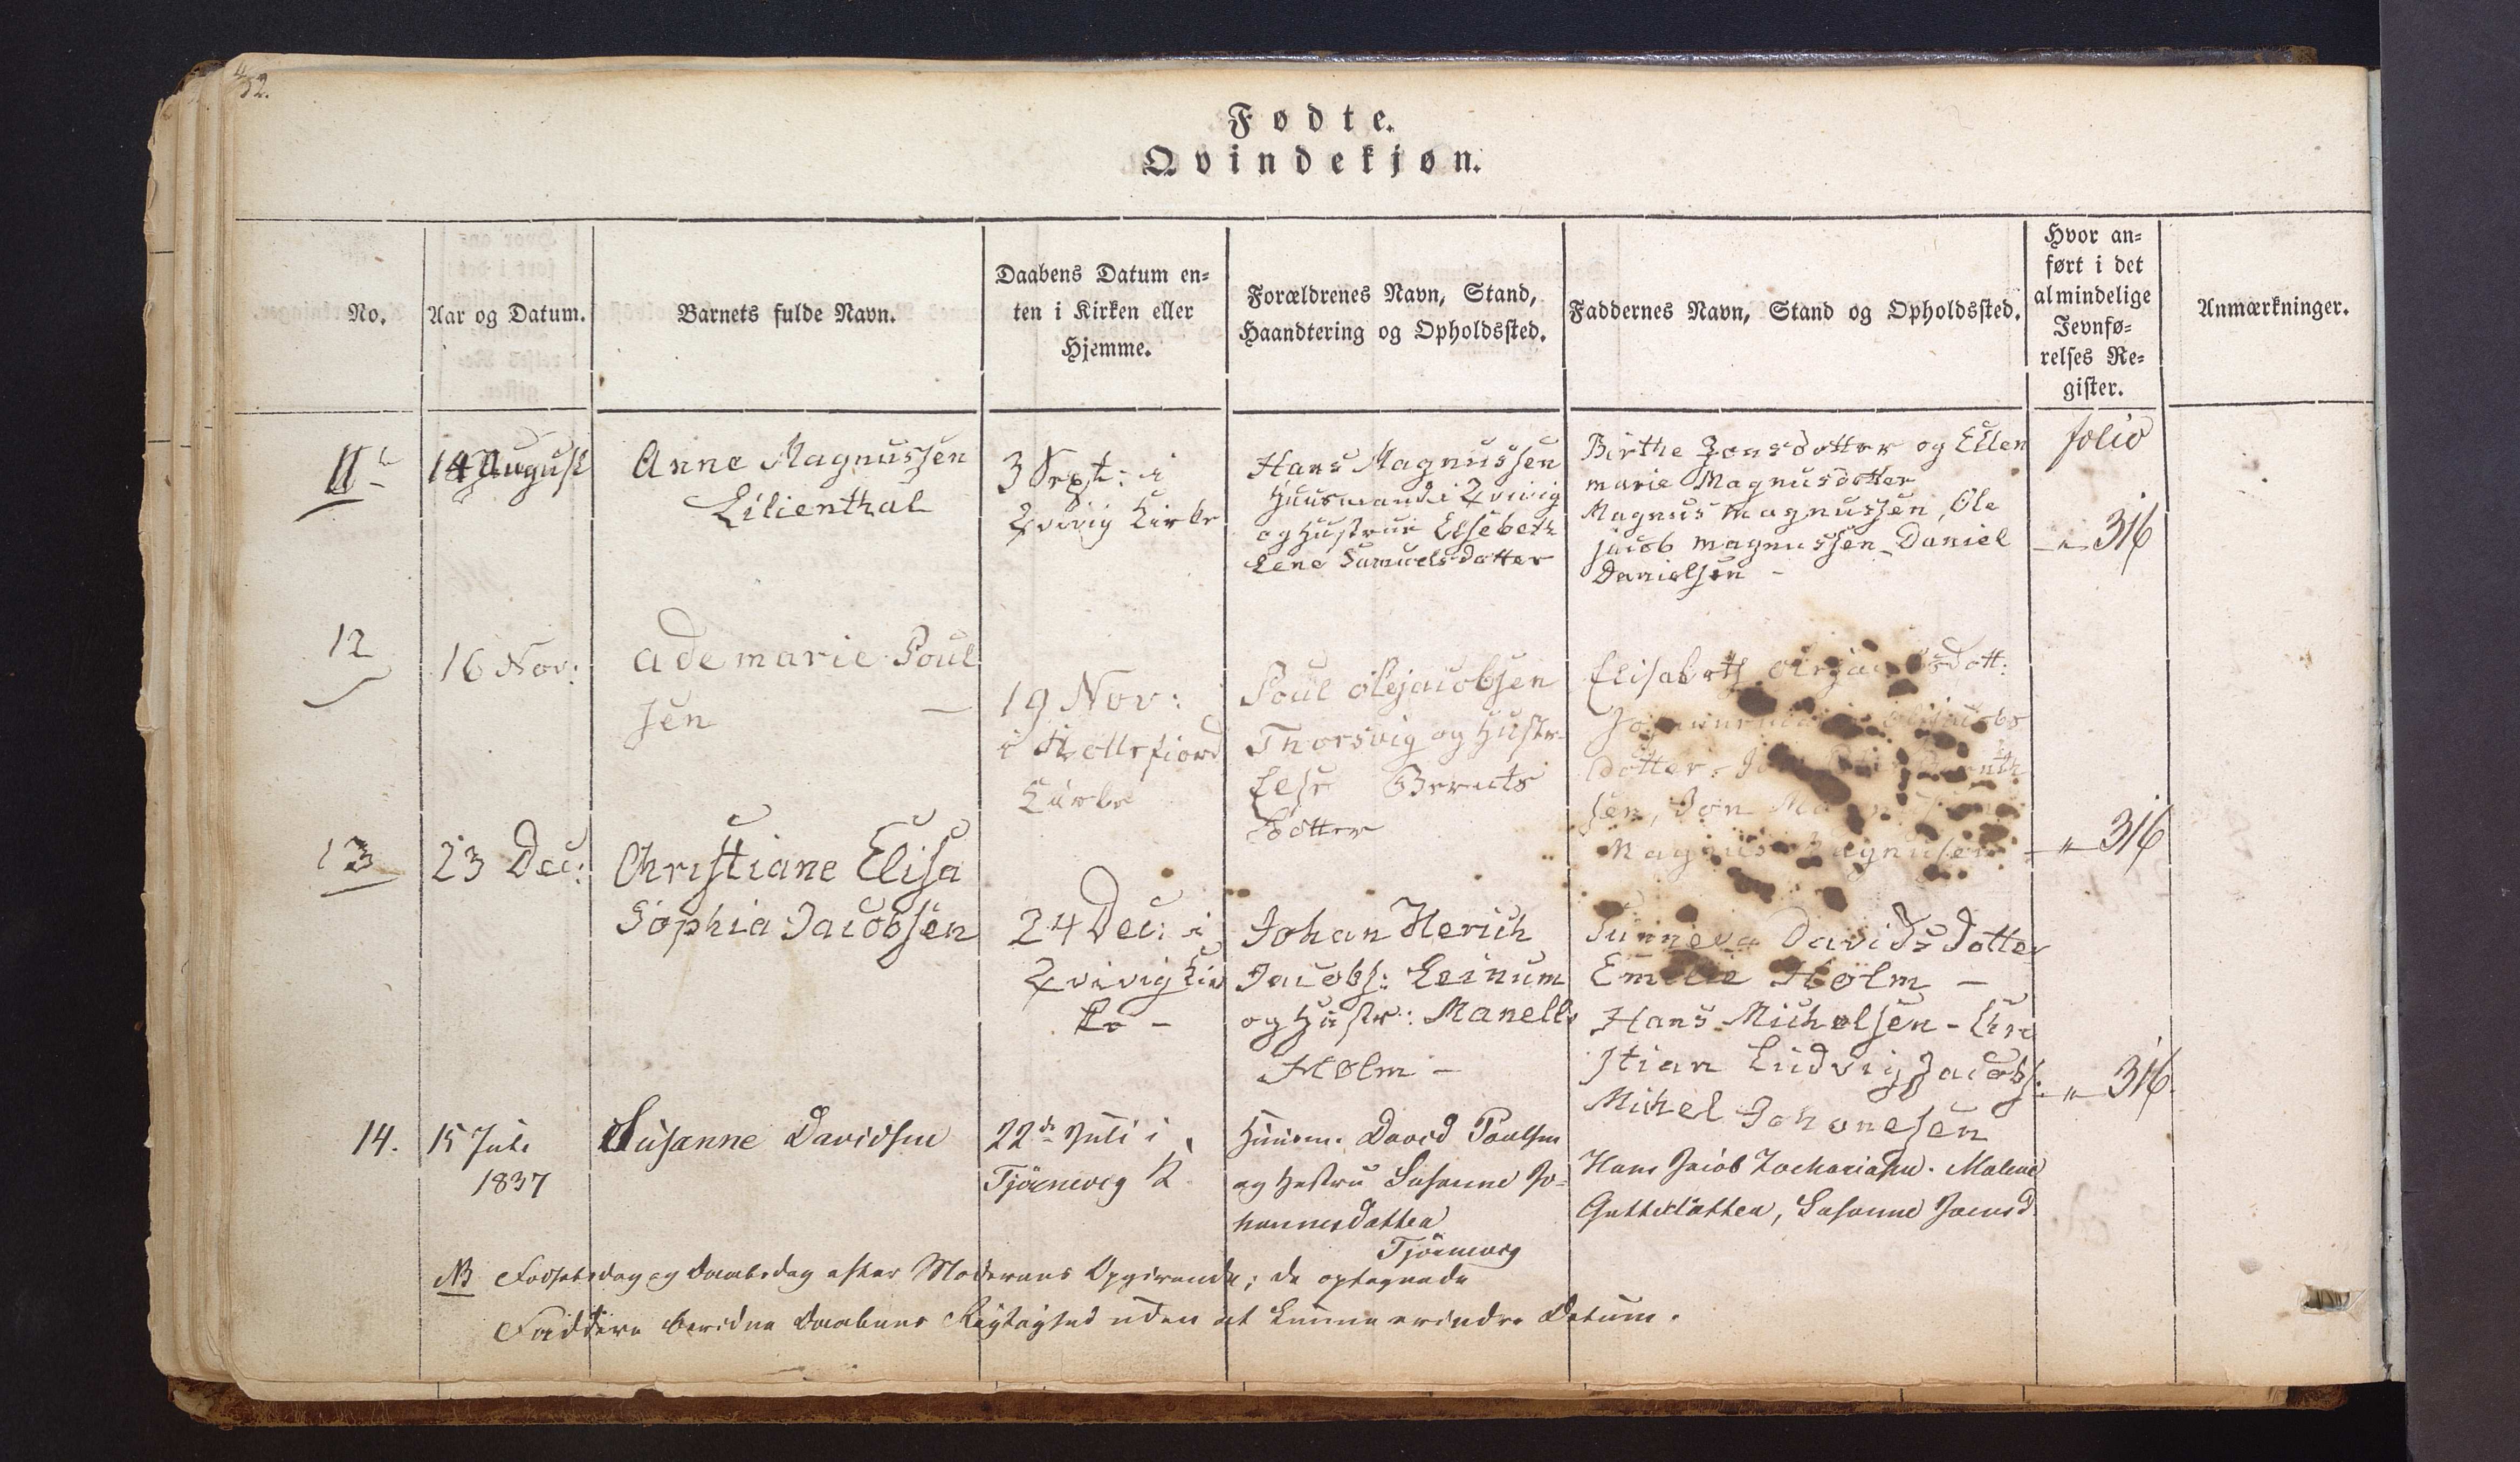 52.
Fødte.
Qvindekjøn.
No.
Aar og Datum.
Barnets fulde Navn.
Daabens Datum en=
ten i Kirken eller
Hjemme.
Forældrenes Navn, Stand,
Haandtering og Opholdssted.
Faddernes Navn, Stand og Opholdssted.
Hvor an=
ført i det
almindelige
Jevnfø=
relses Re=
gister.
Anmærkninger.
11
14 August
Anne Magnussen
Lilienthal
3 Sept: i
Qvivig Kirke
Hans Magnussen
Huusmand i Qvivig
og Hustrue Elsebeth
Lene Samuelsdotter
Birthe Jonsdotter og Ellen
marie Magnusdotter
Magnus magnussen, Ole
jacob magnussen Daniel
Danielsen -
folio
" 316
12
16 Nov:
Ademarie Poul
sen
19 Nov:
i Kollefiord
Kirke
Poul Olejacobsen
Thorsvig og Hustr
Else Bernts
Dotter
Elisabeth
dott:
dotter
sen, Jon
Magnus Magnusen
" 316
13
23 Dec:
Christiane Elisa
Sophia Jacobsen
24 Dec: i
Qvivig Kir
ke -
Johan Herich
Jacobs: Leinum
og Hustr: Manella
Holm -
Sunneva Davids Dotter
Emelie Holm -
Hans Michelsen - Chri
stian Ludvig Jacobs:
Michel Johanesen
" 316
14.
15 Juli
1837
Susanne Davidsen
22de Juli i
Tjörnevig K.
Huusm. David Poulsen
og Hustru Susanne Jo=
hannesdatter
Tjörnevig
Hans Jacob Zachariasen. Malene
Guttesdatter, Susanne Joensd.
NB Fødselsdag og Daabsdag efter Moderens Opgivende; de optegnede
Faddere bevidne Daabens Rigtighed uden at kunne erindre Datum.